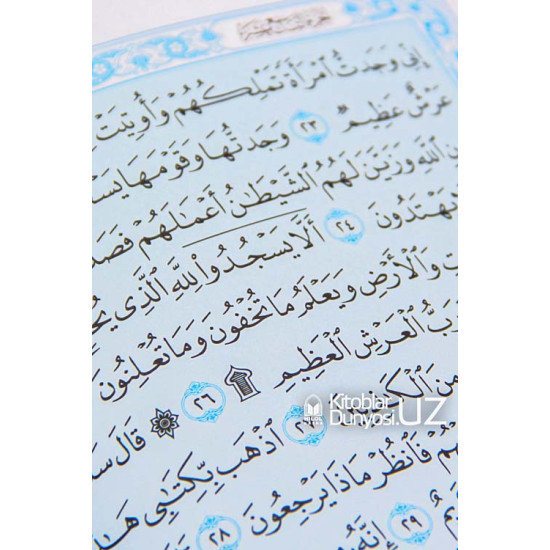 إِنِّي وَجَدتُّ ٱمْرَأَةً تَمْلِكُهُمْ وَأُوتِيَتْ
عَرْشٌ عَظِيمٌ ٢٣ وَجَدتُّهَا وَقَوْمَهَا
ٱللَّهِ وَزَيَّنَ لَهُمُ ٱلشَّيْطَٰنُ أَعْمَٰلَهُمْ
يَهْتَدُونَ ٢٤ أَلَّا يَسْجُدُوا۟ لِلَّهِ ٱلَّذِي
وَٱلْأَرْضِ وَيَعْلَمُ مَا تُخْفُونَ وَمَا تُعْلِنُونَ
رَبُّ ٱلْعَرْشِ ٱلْعَظِيمِ ۩ ٢٦ ۞ قَالَ
مِنَ ٱلْكَٰذِبِينَ ٢٧ ٱذْهَب بِّكِتَٰبِي
فَٱنظُرْ مَاذَا يَرْجِعُونَ ٢٨
٢٩ إِنَّهُۥ
Kitoblar
Dunyosi.UZ